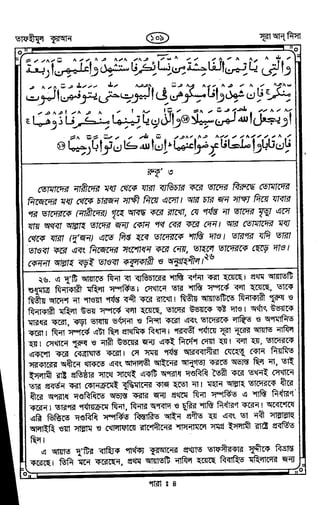 তাফহীমুল কুরআন
১০৯
সূরা আন্ নিসা
وَالّٰتِىْ يَاْتِيْنَ الْفَاحِشَةَ مِنْ نِّسَآئِكُمْ فَاسْتَشْهِدُوْا عَلَيْهِنَّ اَرْبَعَةً
مِّنْكُمْ ۚ فَاِنْ شَهِدُوْا فَاَمْسِكُوْهُنَّ فِى الْبُيُوْتِ حَتّٰى يَتَوَفّٰهُنَّ الْمَوْتُ
اَوْ يَجْعَلَ اللّٰهُ لَهُنَّ سَبِيْلًا ۝ وَالَّذٰنِ يَاْتِيٰنِهَا مِنْكُمْ فَاٰذُوْهُمَا ۚ
فَاِنْ تَابَا وَاَصْلَحَا فَاَعْرِضُوْا عَنْهُمَا ۗ اِنَّ اللّٰهَ كَانَ تَوَّابًا رَّحِيْمًا ۝
রুকূ' ৩
তোমাদের নারীদের মধ্য থেকে যারা ব্যভিচার করে তাদের বিরুদ্ধে তোমাদের
নিজেদের মধ্য থেকে চারজন সাক্ষী নিয়ে এসো। আর চার জন সাক্ষ্য দিয়ে যাবার
পর তাদেরকে (নারীদের) গৃহে আবদ্ধ করে রাখো, যে পর্যন্ত না তাদের মৃত্যু এসে
যায় অথবা আল্লাহ তাদের জন্য কোন পথ বের করে দেন। আর তোমাদের মধ্য
থেকে যারা (দু'জন) এতে লিপ্ত হবে তাদেরকে শাস্তি দাও। তারপর যদি তারা
তাওবা করে এবং নিজেদের সংশোধন করে নেয়, তাহলে তাদেরকে ছেড়ে দাও।
কেননা আল্লাহ বড়ই তাওবা কবুলকারী ও অনুগ্রহশীল।২৬
২৬. এ দু'টি আয়াতে যিনা বা ব্যভিচারের শাস্তি বর্ণনা করা হয়েছে। প্রথম আয়াতটি
শুধুমাত্র যিনাকারী মহিলা সম্পর্কিত। সেখানে তার শাস্তি সম্পর্কে বলা হয়েছে, তাকে
দ্বিতীয় আদেশ না পাওয়া পর্যন্ত বন্দী করে রাখো। দ্বিতীয় আয়াতটিতে যিনাকারী পুরুষ ও
যিনাকারী মহিলা উভয় সম্পর্কে বলা হয়েছে, তাদের উভয়কে কষ্ট দাও। অর্থাৎ উভয়কে
মারধর করো, কড়া ভাষায় ভর্ৎসনা ও নিন্দা করো এবং তাদেরকে লাঞ্ছিত ও অপমানিত
করো। যিনা সম্পর্কে এটা ছিল প্রাথমিক বিধান। পরবর্তী পর্যায়ে সূরা নূরের আয়াত নাযিল
হয়। সেখানে পুরুষ ও নারী উভয়ের জন্য একই নির্দেশ দেয়া হয়। বলা হয়, তাদেরকে
একশো করে বেত্রাঘাত করো। সে সময় পর্যন্ত আরববাসীরা যেহেতু কোন নিয়মিত
সরকারের অধীনে থাকতে এবং আদালতী আইনের আনুগত্য করতে অভ্যস্ত ছিল না, তাই
ইসলামী রাষ্ট্র প্রতিষ্ঠার সাথে সাথেই একটি অপরাধ দণ্ডবিধি তৈরী করে তখনই সেখানে
তার প্রবর্তন করা কোনক্রমেই বুদ্ধিমানের কাজ হতো না। মহান আল্লাহ তাদেরকে ধীরে
ধীরে অপরাধ দণ্ডবিধিতে অভ্যস্ত করার জন্য প্রথমে যিনা সম্পর্কিত এ শাস্তি নির্ধারণ
করেন। তারপর পর্যায়ক্রমে যিনা, যিনার অপবাদ ও চুরির শাস্তি নির্ধারণ করেন। অবশেষে
এরি ভিত্তিতে দণ্ডবিধি সম্পর্কিত বিস্তারিত আইন প্রণীত হয় এবং তা নবী সাল্লাল্লাহু
আলাইহি ওয়া সাল্লাম ও খোলাফায়ে রাশেদীনের শাসনামলে সমগ্র ইসলামী রাষ্ট্রে প্রবর্তিত
ছিল।
এ আয়াত দু'টির বাহ্যিক পার্থক্য কুরআনের প্রখ্যাত তাফসীরকার সুদ্দীকে বিভ্রান্ত
করেছে। তিনি মনে করেছেন, প্রথম আয়াতটি নাযিল হয়েছে বিবাহিত মহিলাদের জন্য
পারা ঃ ৪